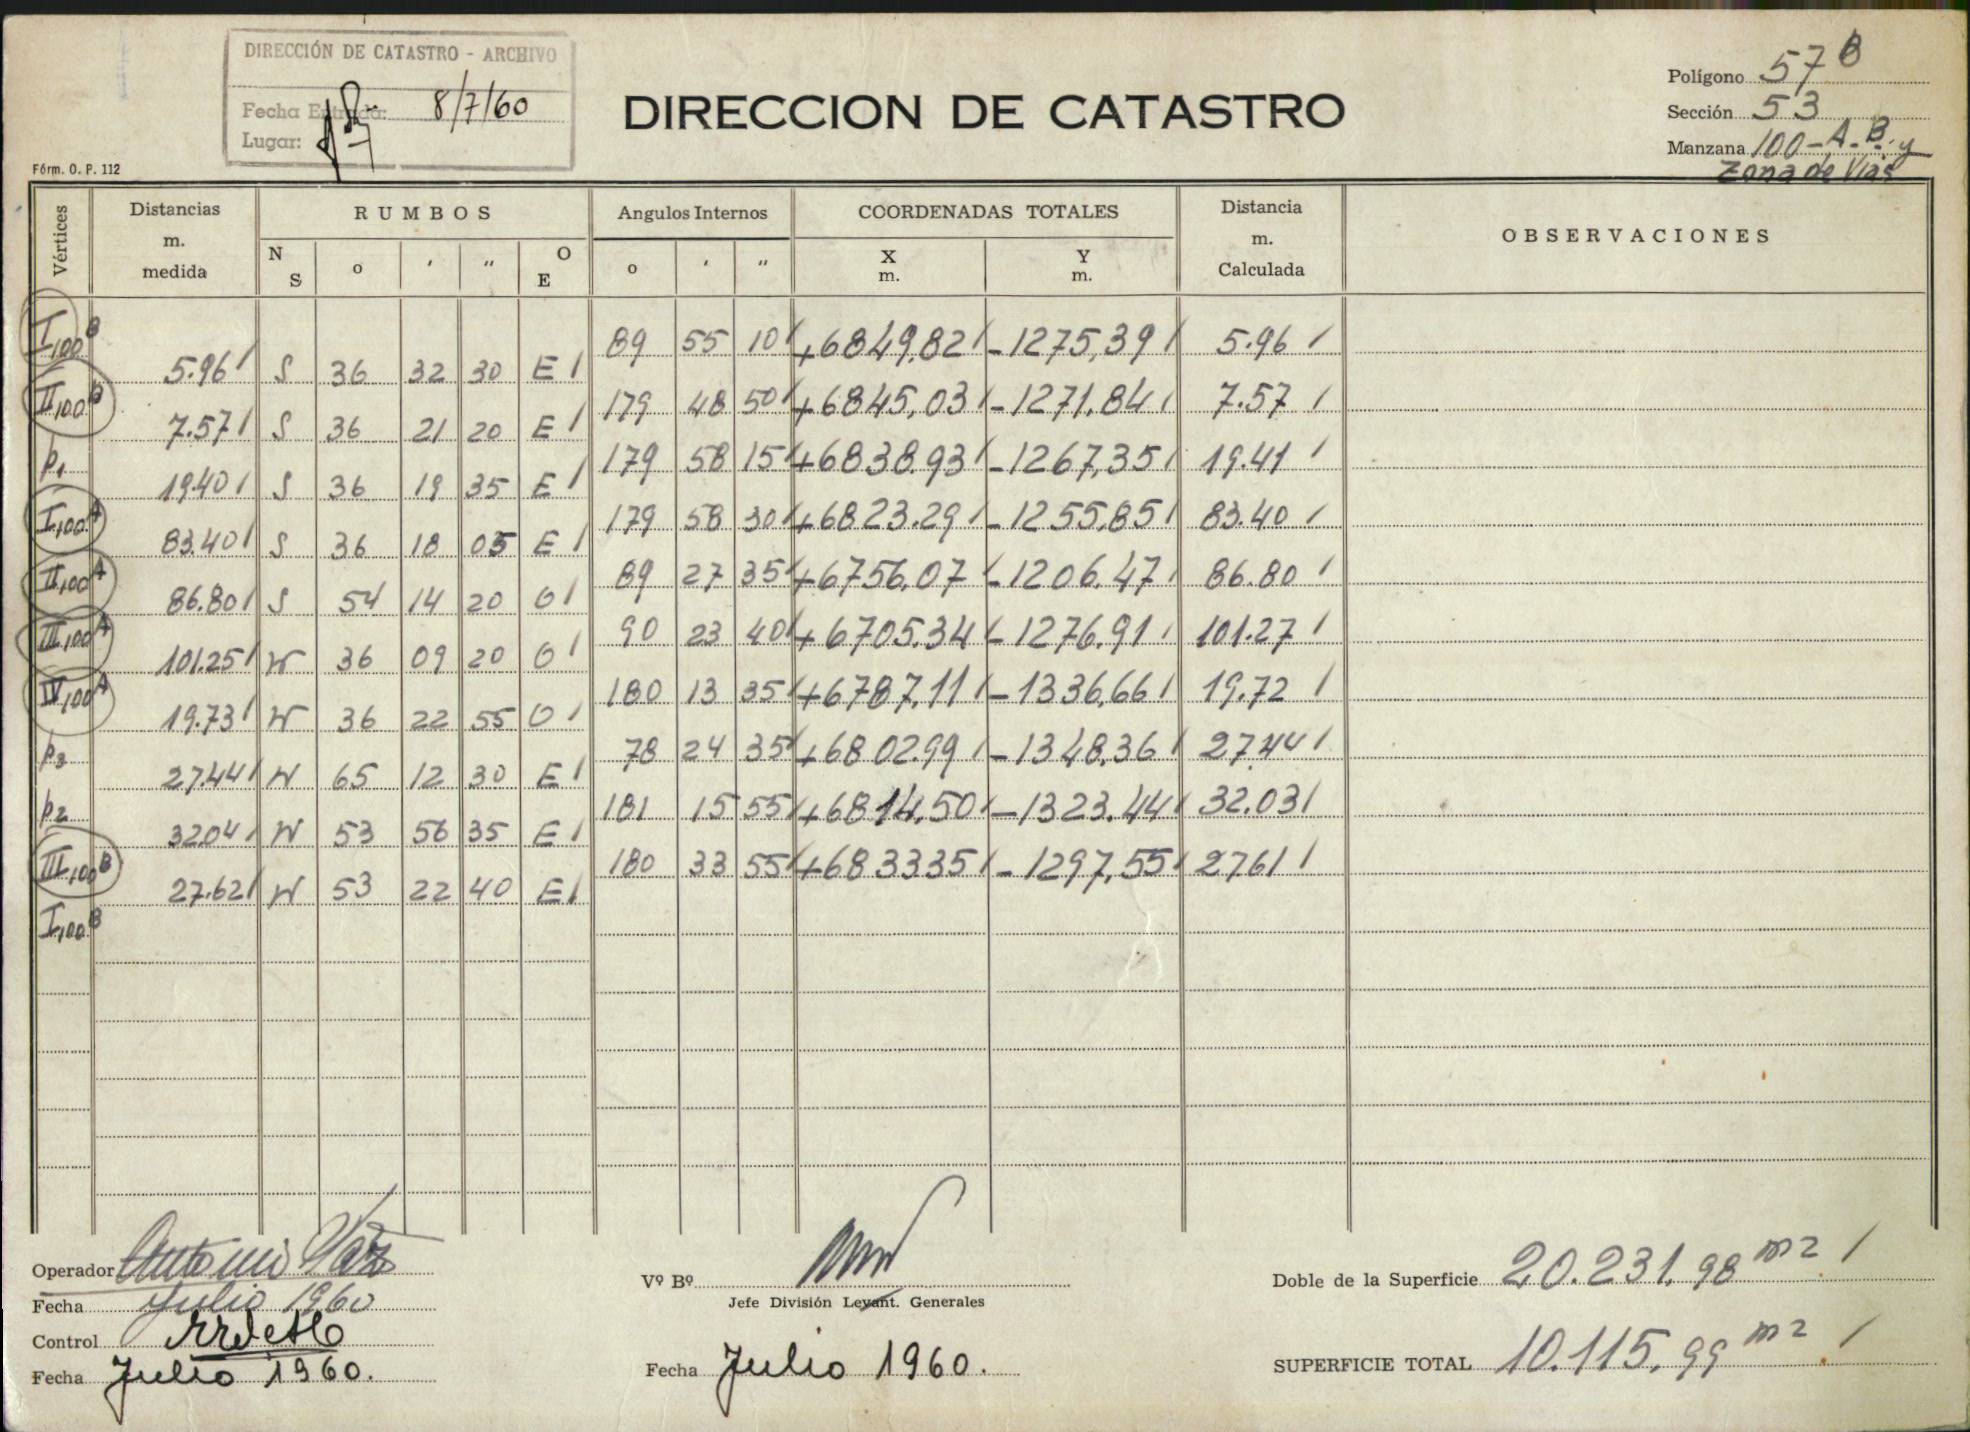 DIRECCIÓN DE CATASTRO - ARCHIVO
Fecha Entrada: 8/7/60
Lugar:
DIRECCION DE CATASTRO
Polígono 57 B
Sección 53
Manzana 100-A-B y
Zona de Vías
Fórm. O. P. 112
Vértices Distancias m. medida RUMBOS Angulos Internos COORDENADAS TOTALES Distancia m. Calculada OBSERVACIONES
N S o ′ ″ O E o ′ ″ X m. Y m.
I,100 B 89 55 10 +6849,82 -1275,39 5.96
5.96 S 36 32 30 E
II,100 B 179 48 50 +6845,03 -1271,84 7.57
7.57 S 36 21 20 E
p1 179 58 15 +6838.93 -1267,35 19.41
19.40 S 36 19 35 E
I,100 A 179 58 30 +6823.29 -1255,85 83.40
83.40 S 36 18 05 E
II,100 A 89 27 35 +6756,07 -1206.47 86.80
86.80 S 54 14 20 O
III,100 A 90 23 40 +6705.34 -1276.91 101.27
101.25 N 36 09 20 O
IV,100 A 180 13 35 +6787,11 -1336,66 19.72
19.73 N 36 22 55 O
p3 78 24 35 +6802.99 -1348.36 27.44
27.44 N 65 12 30 E
p2 181 15 55 +6814.50 -1323.44 32.03
32.04 N 53 56 35 E
III,100 B 180 33 55 +6833.35 -1297,55 27.61
27.62 N 53 22 40 E
I,100 B
Operador Antonio
Fecha Julio 1960
Control
Fecha Julio 1960.
Vº Bº
Jefe División Levant. Generales
Fecha Julio 1960.
Doble de la Superficie 20.231,98 m2
SUPERFICIE TOTAL 10.115,99 m2